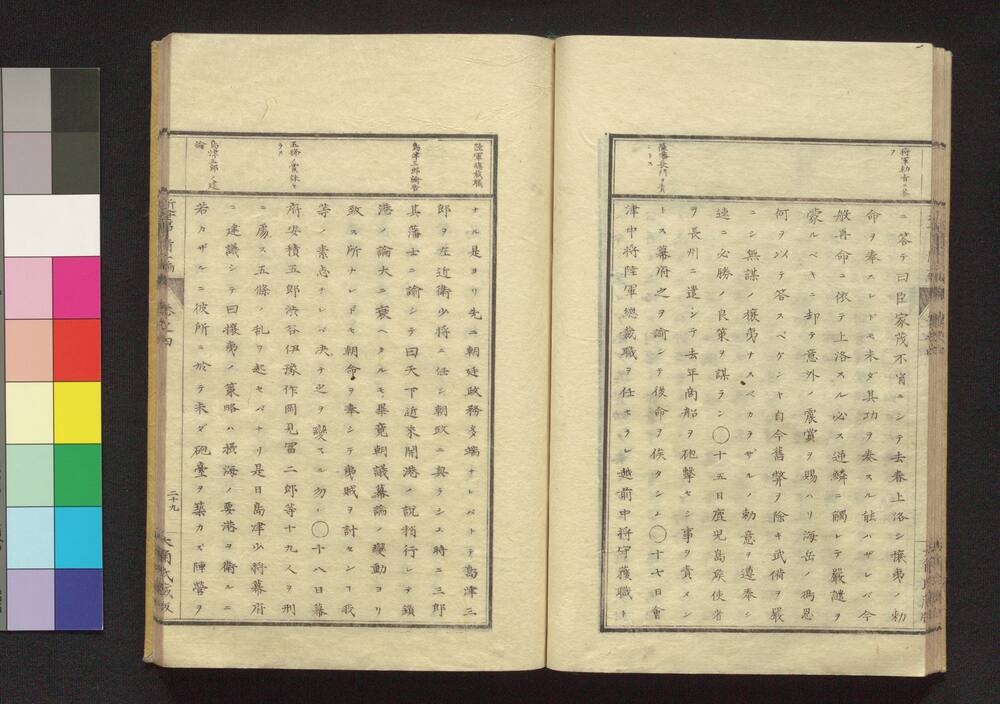 將軍勅書ニ答フ
薩藩長州ヲ責ントス
ニ答テ曰臣家茂不肖ニシテ去春上洛シ攘夷ノ勅
命ヲ奉スレドモ未ダ其功ヲ奏スル能ハザレバ今
般再命ニ依テ上洛スル必ス逆鱗ニ觸レテ嚴譴ヲ
蒙ルベキニ却テ意外ノ宸賞ヲ賜ハリ海岳ノ鴻恩
何ヲ以テ答スベケンヤ自今舊弊ヲ除キ武備ヲ嚴
ニシ無謀ノ攘夷ナスベカラザルノ勅意ヲ遵奉シ
速ニ必勝ノ良策ヲ謀ラン◯十五日鹿児島矦使者
ヲ長州ニ遣シテ去年商船ヲ砲擊セシ事ヲ責メン
トス幕府之ヲ諭シテ後命ヲ俟タシム◯十七日會
津中將陸軍總裁職ヲ任セラレ越前中將守護職ト
陸軍總裁職
島津三郎諭告
五條ノ黨誅セラル
島津三郎ノ建論
ナル是ヨリ先ニ朝廷政務多端ナレバトテ島津三
郎ヲ左近衛少將ニ任シ朝政ニ與ラシム時ニ三郎
其藩士ニ諭シテ曰天下近來開港ノ説稍行レテ鎖
港ノ論大ニ衰ヘタルモ畢竟朝議幕論ノ變動ヨリ
致ス所ナレドモ朝命ヲ奉シテ夷賊ヲ討センヿ我
等ノ素志ナレバ决テ之ヲ變スル勿レ◯十八日幕
府安積五郎渋谷伊豫作岡見畱二郎等十九人ヲ刑
ニ處ス五條ノ乱ヲ起セバナリ是日島津少將幕府
ニ建議シテ曰攘夷ノ策略ハ摂海ノ要港ヲ衛ルニ
若カザルニ彼所ニ於テ未ダ砲臺ヲ築カズ陣營ヲ
二十九